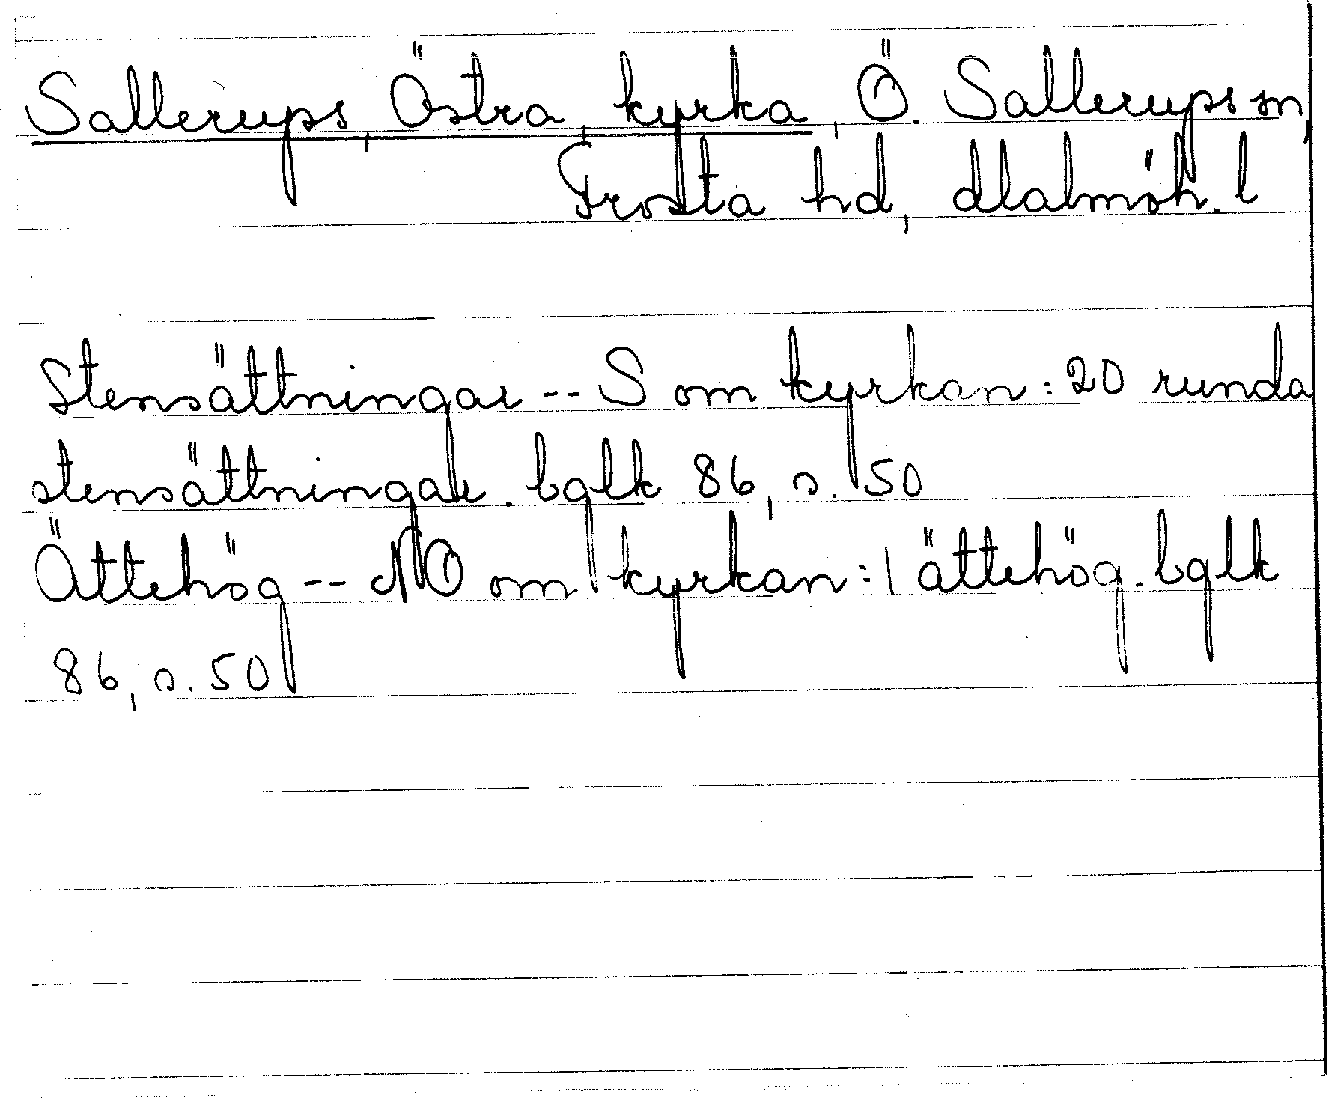 Sallerups, Östra, kyrka, Ö. Sallerups sn,
Frosta hd, Malmöh. l
Stensättningar -- S om kyrkan: 20 runda
stensättningar. bglk 86, s. 50
Ättehög -- NO om kyrkan: 1 ättehög. bglk
86, s. 50